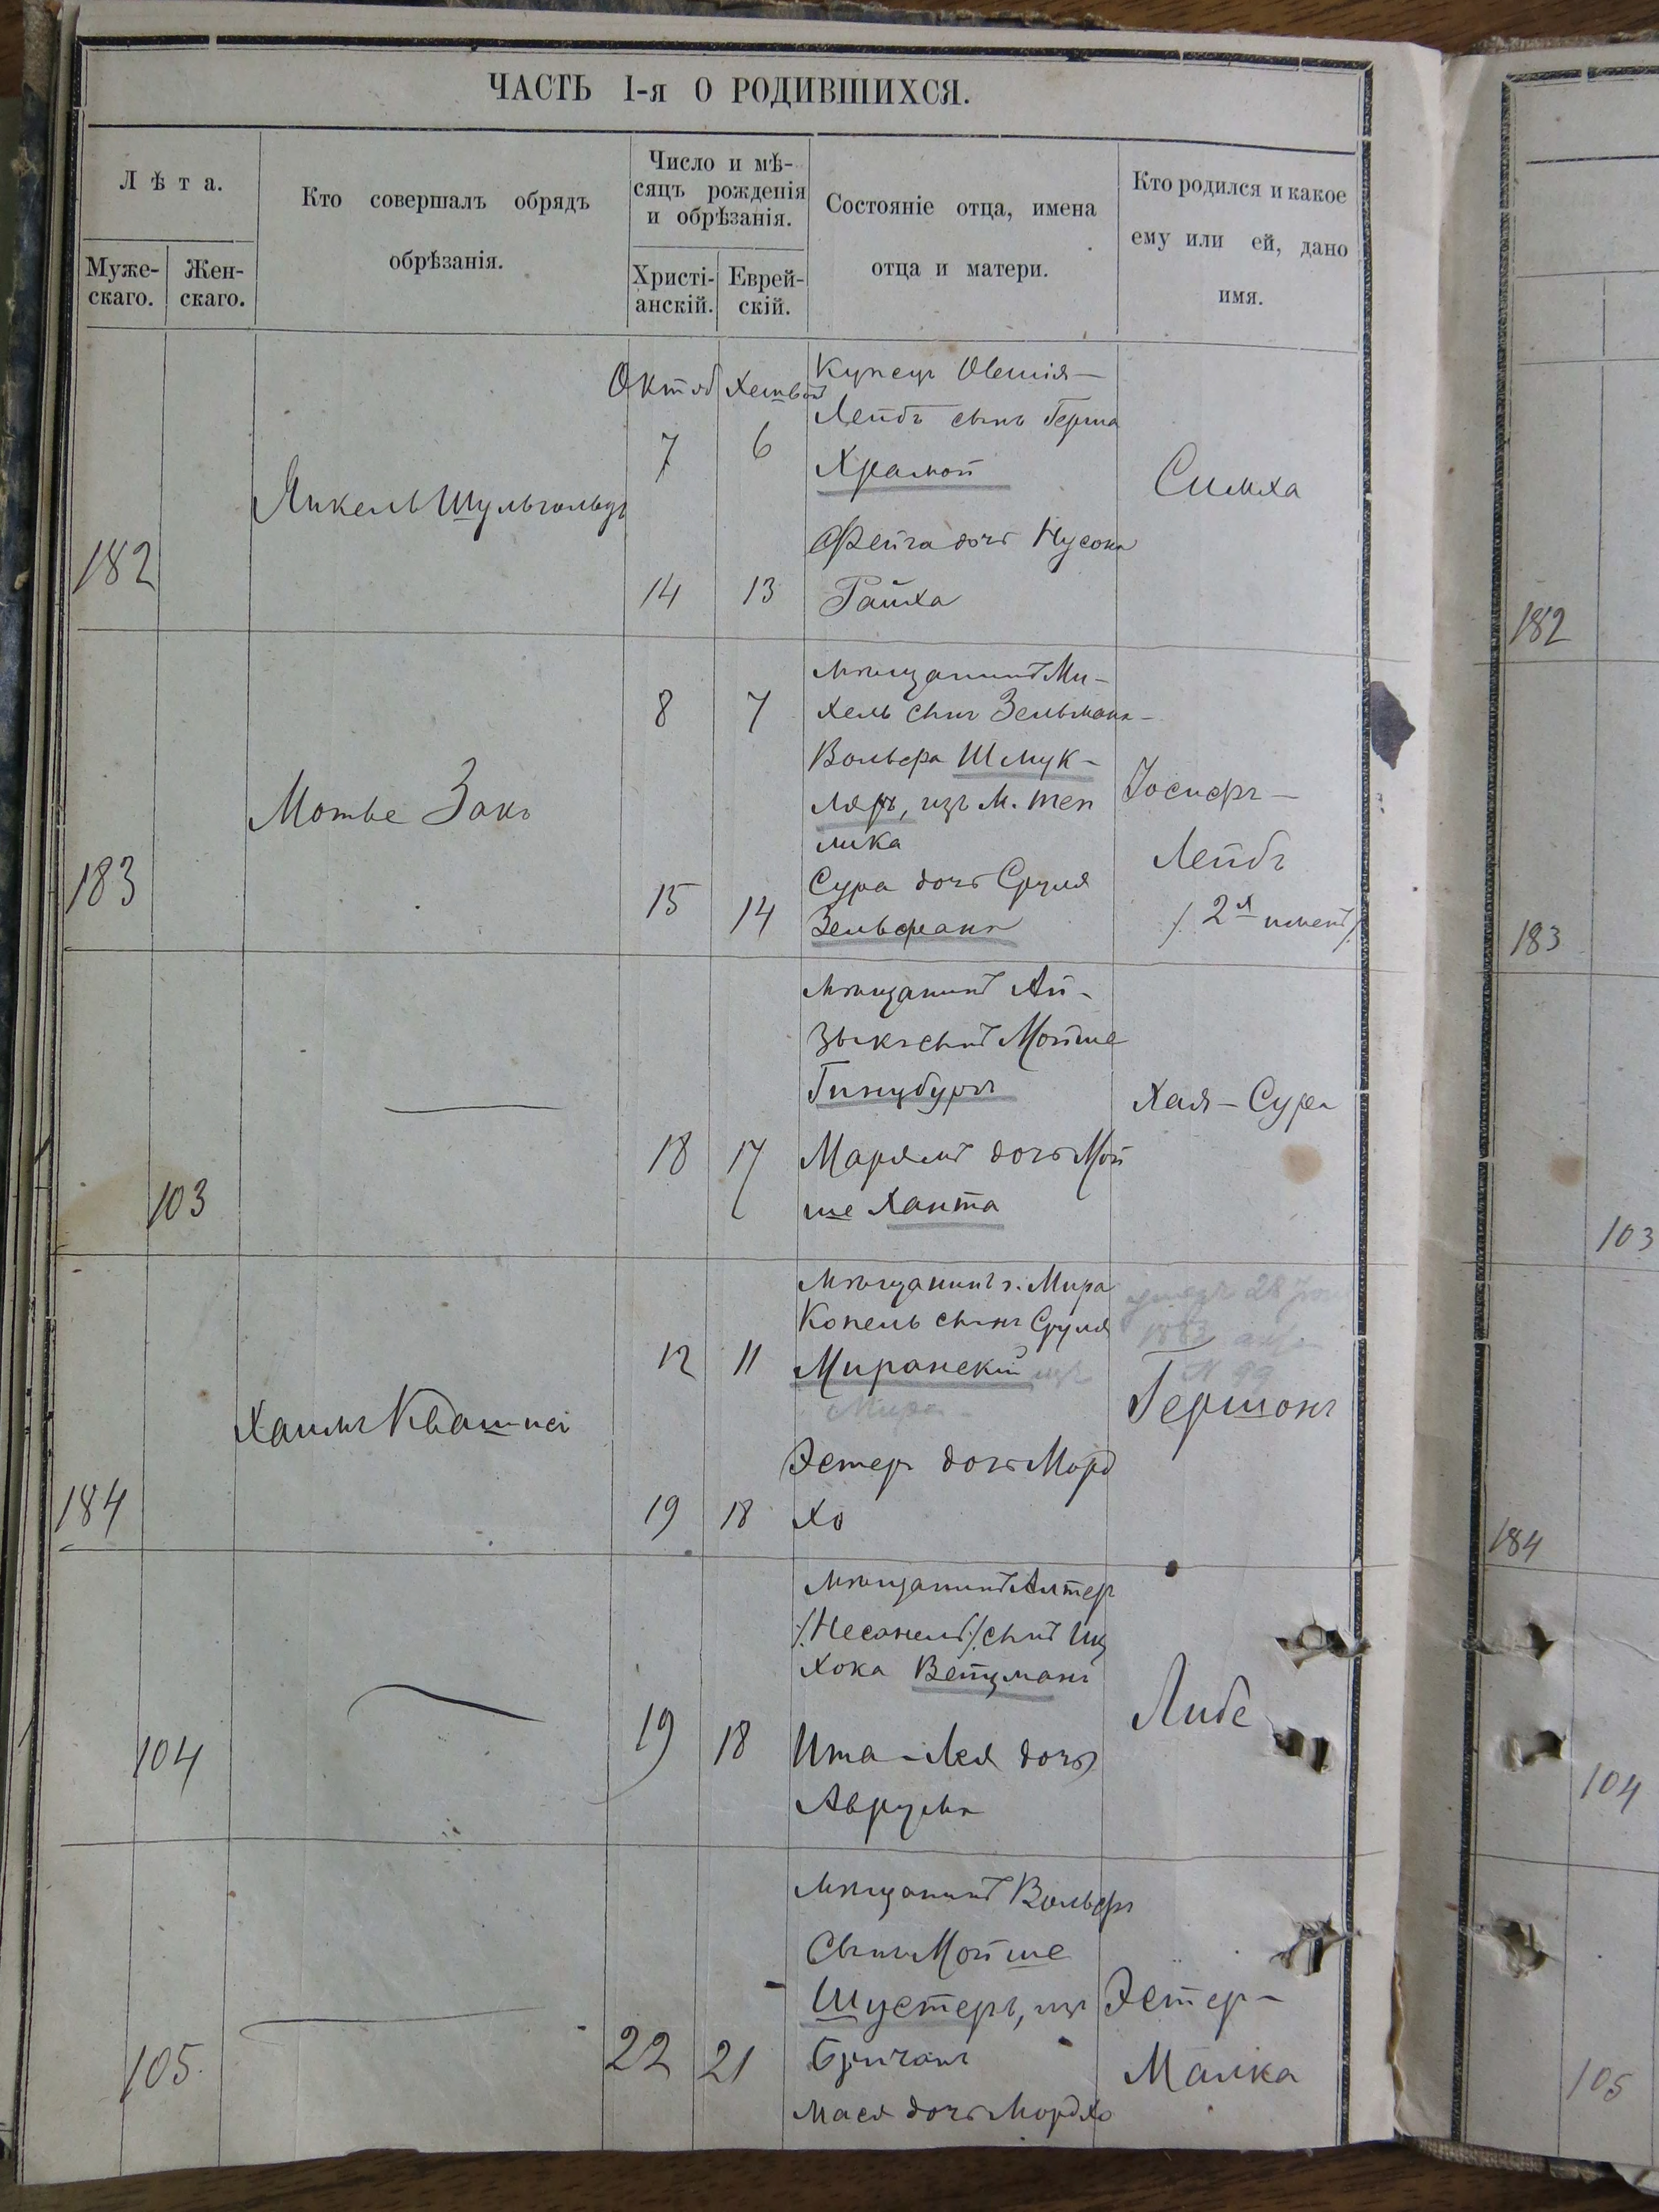 ЧАСТЬ I-я О РОДИВШИХСЯ.
Лѣта.
Муже-
скаго.
Жен-
скаго.
Кто совершалъ обрядъ
обрѣзанія.
Число и мѣ-
сяцъ рожденія
и обрѣзанія.
Христі-
анскій.
Еврей-
скій.
Состояніе отца, имена
отца и матери.
Кто родился и какое
ему или ей, дано
имя.
182
Янкель Шульгольцъ
Октяб
7
14
6
13
Купецъ Овшія-
Лейбъ сынъ Герша
Храмой
Фейга дочь Нусона
Гайха
Симха
182
183
Мотье Закъ
8
15
7
14
мѣщанинъ Ми-
хель сынъ Зельмана-
Вольфа Шмук-
ляръ, изъ м. Теп
лика
Сура дочь Сруля
Зельфана
Іосифъ-
Лейбъ
/. 2я имен./
183
103
18
17
мѣщанинъ Ай-
зыкъ сынъ Мойше
Гинцбургъ
Марямъ дочь Мой
ше Ханта
Хая-Сура
103
184
Хаимъ Квашній
12
19
11
18
мѣщанинъ г. Мира
Копель сынъ Сруля
Миранскій изъ
Мира
Эстеръ дочь Морд
хо
28
N 99
Гершонъ
184
104
19
18
мѣщанинъ Алтеръ
/.Несонель./ сынъ Иц
хока Вейцманъ
Ита-Лея дочь
Аврума
Либе
104
105.
22
21
мѣщанинъ Вольфъ
сынъ Мойше
Шустеръ, изъ
Бричанъ
Мася дочь Мордхо
Эстеръ-
Малка
105